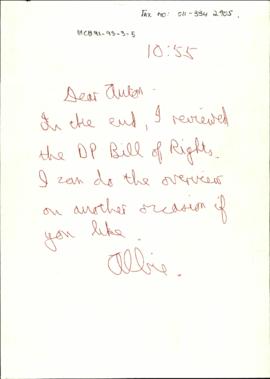 Fax no: 011-334 2905.
MCB91-93-3-5
10:55
Dear Anton.
In the end, I reviewed
the DP Bill of Rights.
I can do the overview
on another occasion if
you like.
Albie.